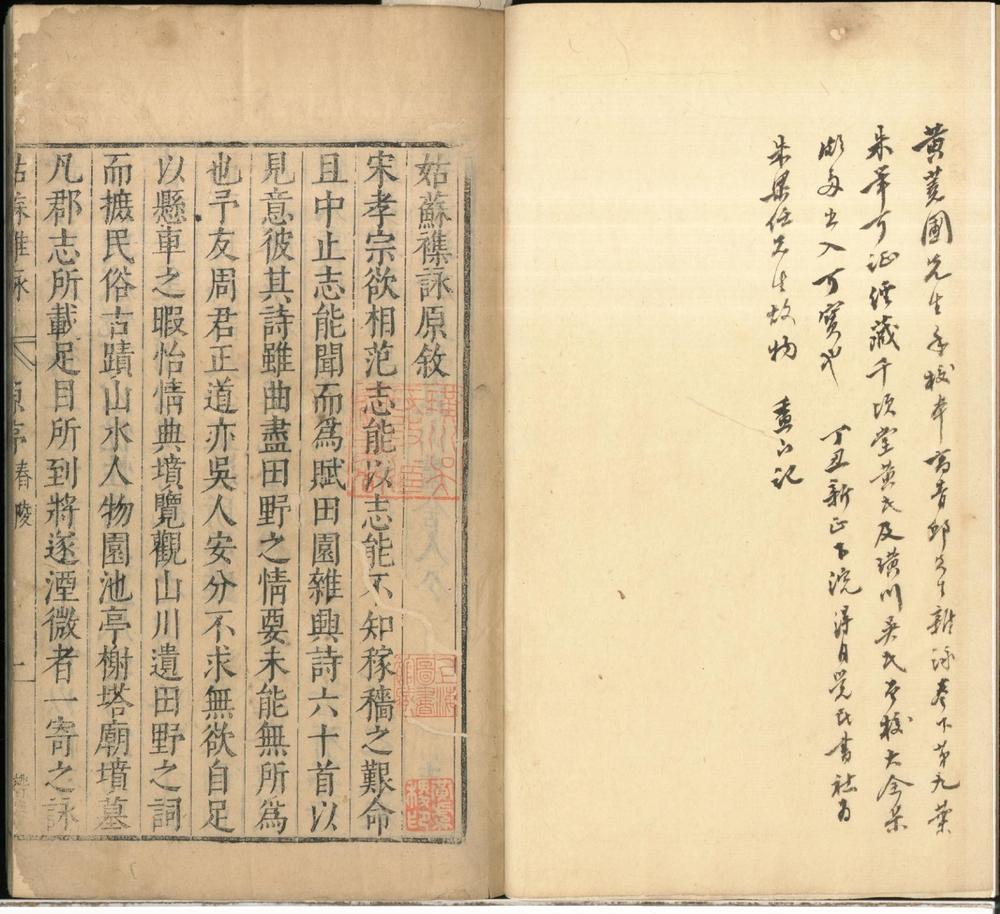 黃蕘圃先生手校本高青邱先生雜詠卷下第九葉
朱筆可証經藏千頃堂黃氏及璜川吳氏君校大全集
出入可寶也 丁丑新正下浣得自覺民書社為
朱梁任先生故物 記
姑蘇襍詠原敘
宋孝宗欲相范志能以志能不知稼穡之艱命
且中止志能聞而為賦田園雜興詩六十首以
見意彼其詩雖曲盡田野之情要未能無所為
也予友周君正道亦吳人安分不求無欲自足
以懸車之暇怡情典墳覽觀山川遺田野之詞
而摭民俗古蹟山水人物園池亭榭塔廟墳墓
凡郡志所載足目所到將遂湮微者一寄之詠
姑蘇雜詠 原序 春陵 一